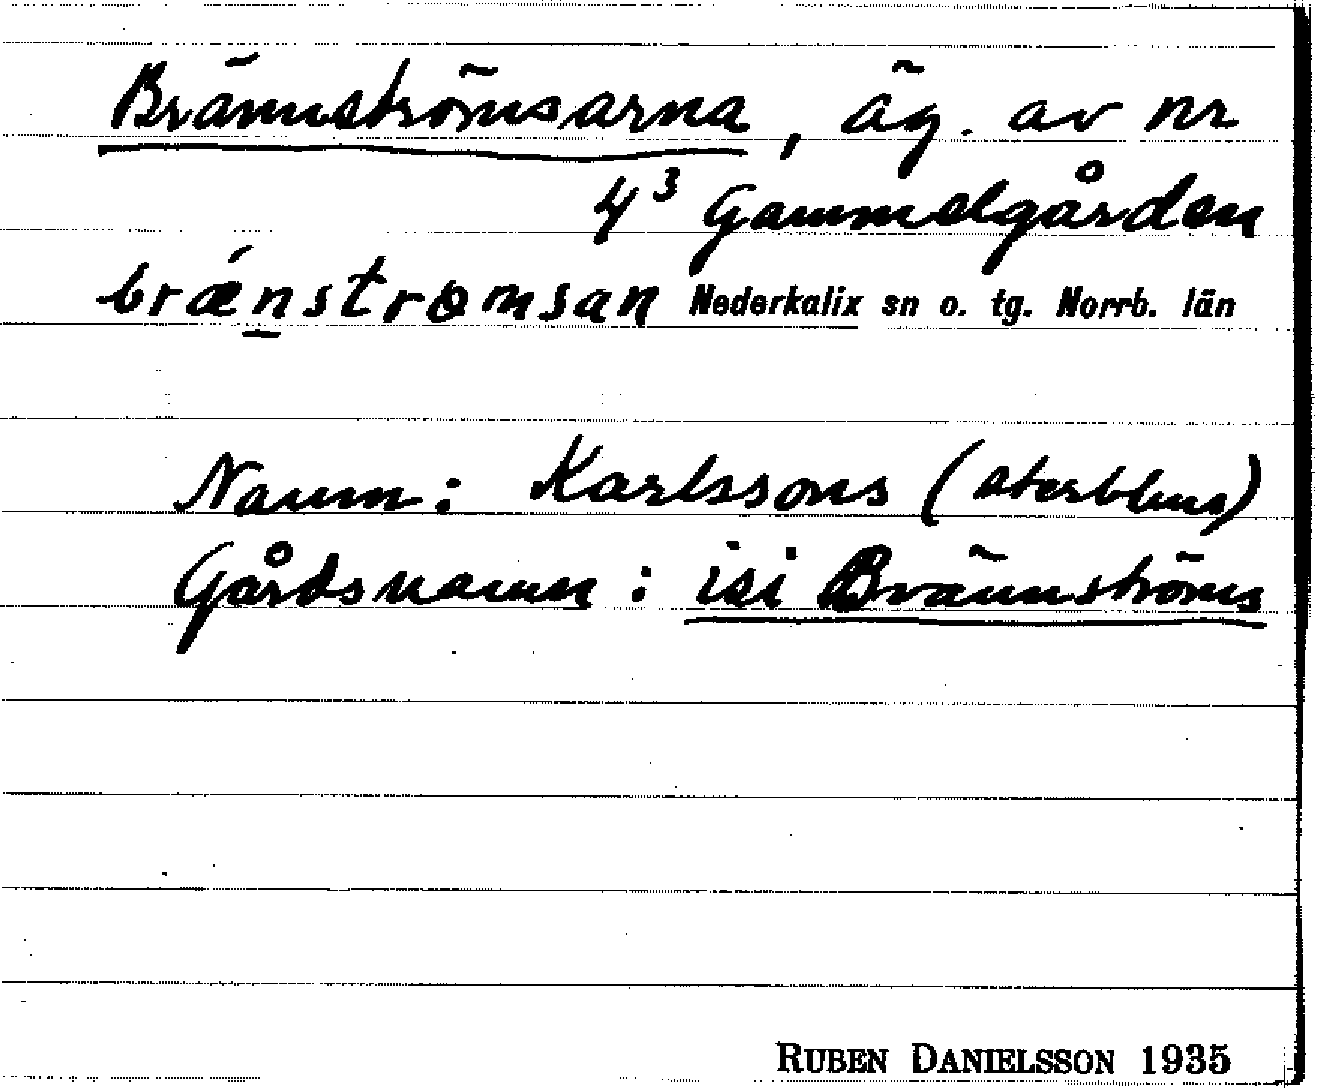 Brännströmsarna, äg. av nr
4³ Gammelgården
brǽnstromsan Nederkalix sn o. tg. Norrb. län
Namn: Karlssons (sterbhus)
Gårdsnamn: isi Brännströms
RUBEN DANIELSSON 1935